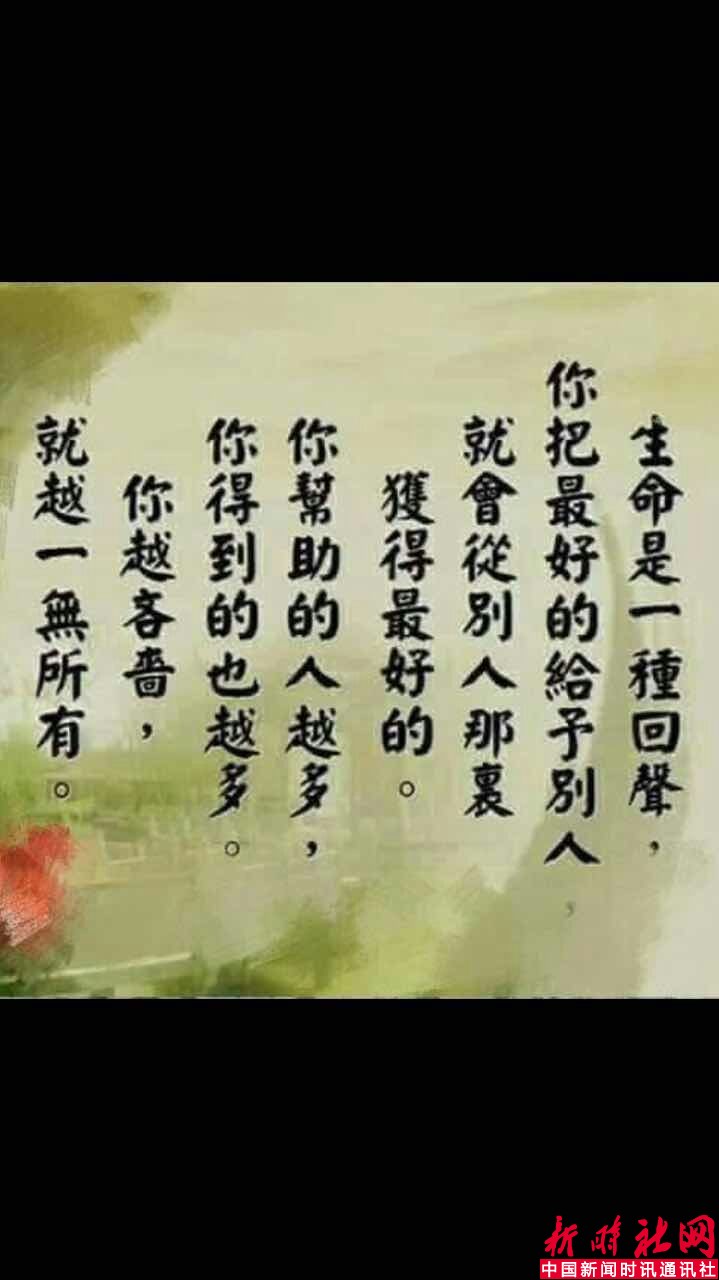 生命是一種回聲，
你把最好的給予別人，
就會從別人那裏
獲得最好的。
你幫助的人越多，
你得到的也越多。
你越吝嗇，
就越一無所有。
新时社网
中国新闻时讯通讯社